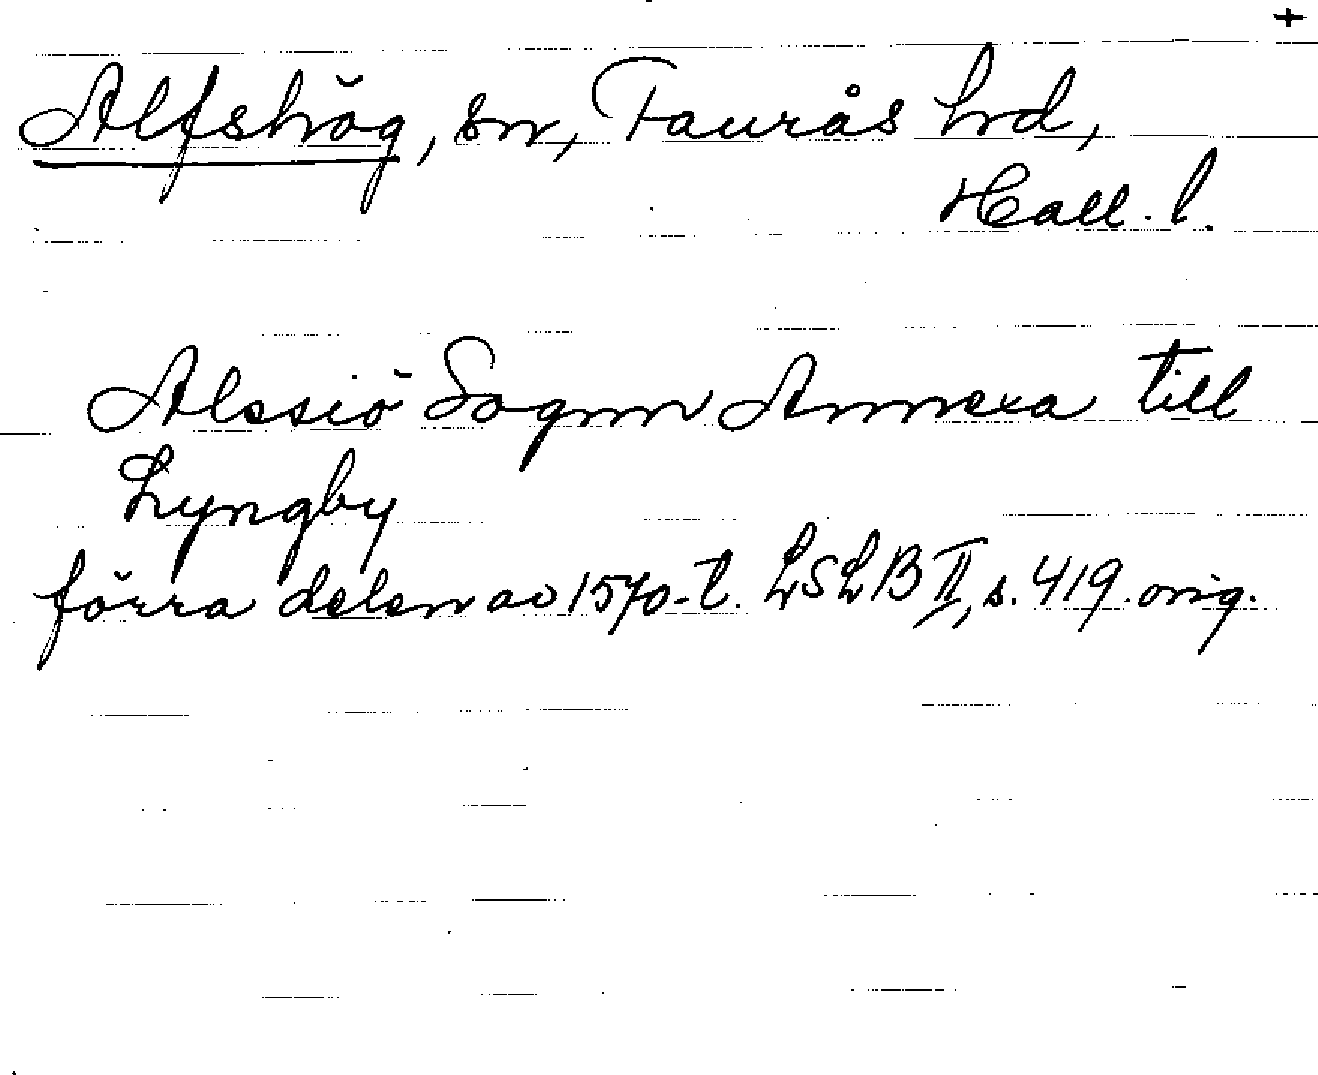 +
Alfshög, sn, Faurås hrd,
Hall. l.
Alssiö Sognn Annexa till
Lyngby
förra delen av 1570-t. LSLB II, s. 419. orig.